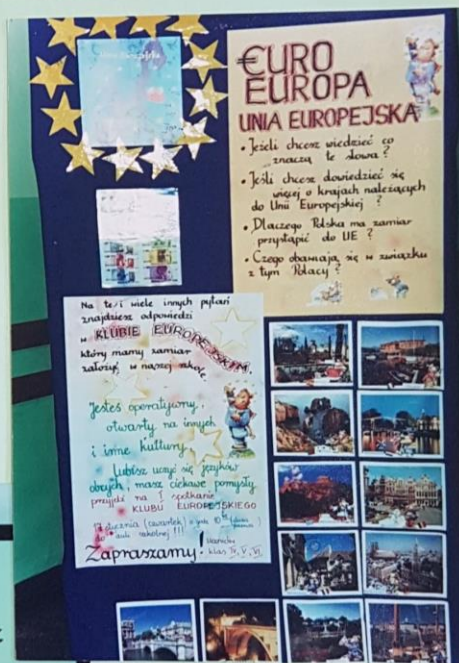 €URO
EUROPA
UNIA EUROPEJSKA
• Jeżeli chcesz wiedzieć co
znaczą te słowa?
• Jeśli chcesz dowiedzieć się
więcej o krajach należących
do Unii Europejskiej?
• Dlaczego Polska ma zamiar
przystąpić do UE?
• Czego obawiają się w związku
z tym Polacy?
Na te i wiele innych pytań
znajdziesz odpowiedzi
w KLUBIE EUROPEJSKIM,
który mamy zamiar
założyć w naszej szkole.
Jesteś operatywny,
otwarty na innych
i inne kultury,
lubisz uczyć się języków
obcych, masz ciekawe pomysły
przyjdź na I spotkanie
KLUBU EUROPEJSKIEGO
stycznia (czwartek) o godz. 10
do auli szkolnej!!!
Zapraszamy!
klas IV, V, VI